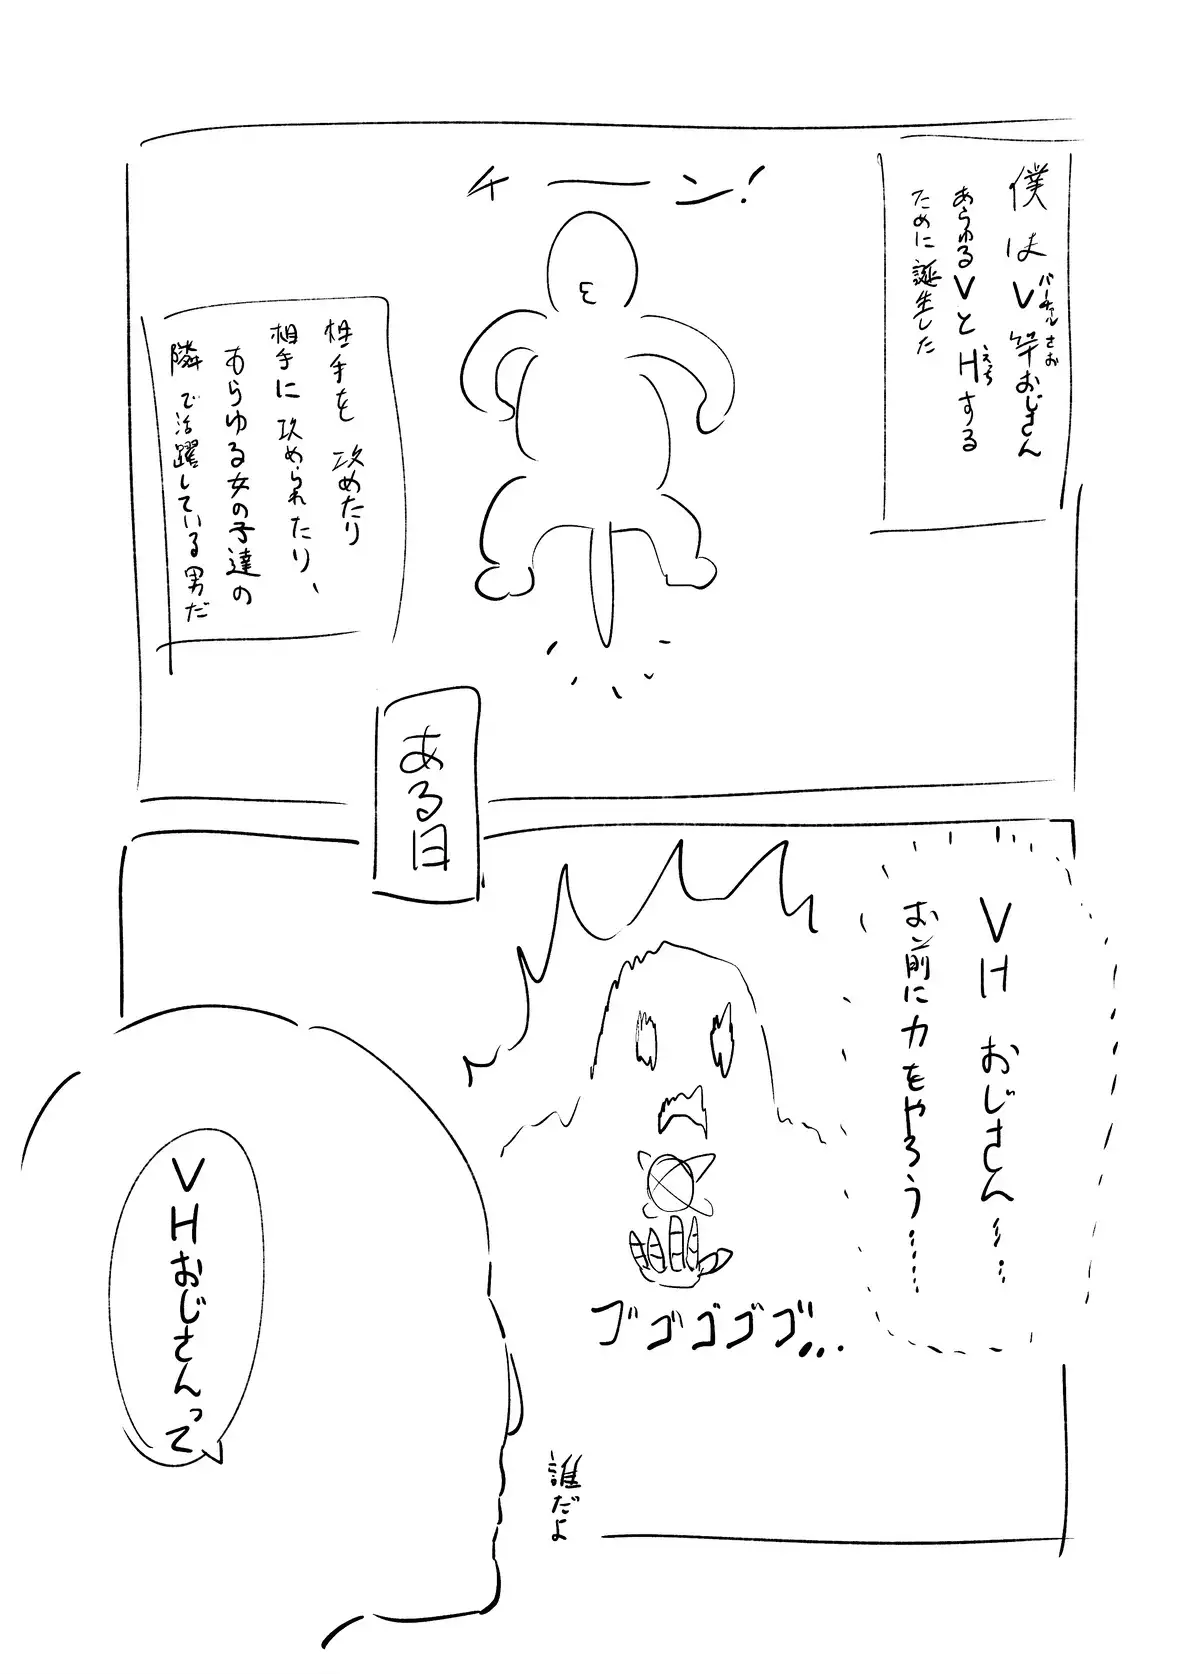 僕はV竿おじさん
バーチャルさお
あらゆるVとHする
えっち
ために誕生した
チーン!
相手を攻めたり
相手に攻められたり、
あらゆる女の子達の
隣で活躍している男だ
ある日
VHおじさん……
お前に力をやろう……
ゴゴゴゴゴ…
VHおじさんって
誰だよ